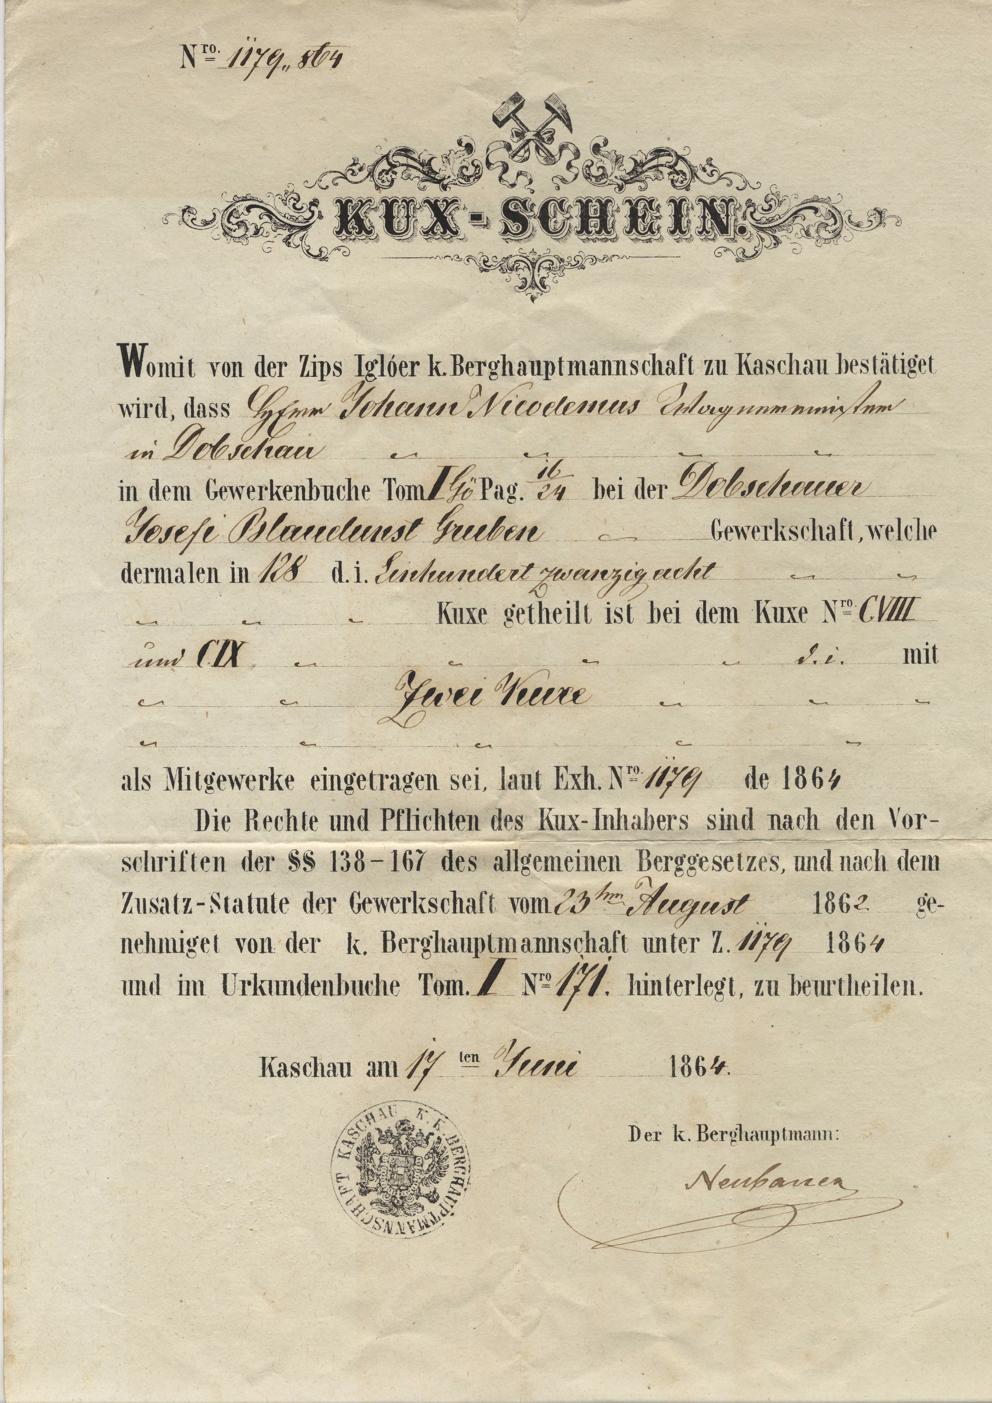 Nro. 1179„ 864
KUX-SCHEIN.
Womit von der Zips Iglóer k. Berghauptmannschaft zu Kaschau bestätiget
wird, dass Herr Johann Nicodemus Wagnermeister
in Dobschau
in dem Gewerkenbuche Tom I Gö Pag. 16/24 bei der Dobschauer
Josefi Blaudunst Gruben Gewerkschaft, welche
dermalen in 128 d. i. Einhundert zwanzig acht
Kuxe getheilt ist bei dem Kuxe Nro. CVIII
und CIX d. i. mit
Zwei Kuxe
als Mitgewerke eingetragen sei, laut Exh. Nro. 1179 de 1864
Die Rechte und Pflichten des Kux-Inhabers sind nach den Vor-
schriften der §§ 138-167 des allgemeinen Berggesetzes, und nach dem
Zusatz-Statute der Gewerkschaft vom 23ten August 1862 ge-
nehmiget von der k. Berghauptmannschaft unter Z. 1179 1864
und im Urkundenbuche Tom. I Nro 171. hinterlegt, zu beurtheilen.
Kaschau am 17 ten Juni 1864.
K. K. BERGHAUPTMANNSCHAFT KASCHAU
Der k. Berghauptmann:
Neubauer